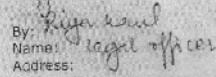 By:
Name: Legal officer
Address: